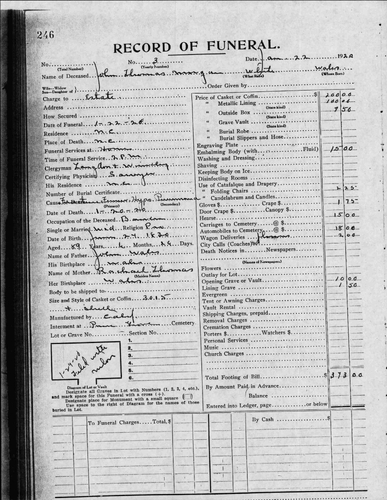 246
RECORD OF FUNERAL.
No. No. 3 Date, Jan-22 1920
(Total Number) (Yearly Number)
Name of Deceased John Thomas Morgan White Wales
(Where Born)
Charge to Estate Order Given by
Address
How Secured
Date of Funeral 1-22-20.
Residence N.C.
Place of Death N.C.
Funeral Services at Home
Time of Funeral Service 2 P.M.
Clergyman
Certifying Physician Sawyer
His Residence N.C.
Number of Burial Certificate
Cause Hypo. Pneumonia
Date of Death 1-20-20
Occupation of the Deceased
Single or Married Wid. Religion
Date of Birth June-24-1830
Aged 89 Years, 6 Months, Days.
Name of Father John
His Birthplace Wales
Name of Mother Rachael Thomas
(Maiden Name)
Her Birthplace Wales
Body to be shipped to
Size and Style of Casket or Coffin
Manufactured by
Interment at Cemetery
Lot or Grave No. Section No.
1
2
3
4
5
Diagram of Lot or Vault
Designate all Graves in Lot with Numbers (1, 2, 3, 4, etc.), and mark space for this Funeral with a cross (+).
Designate place for Monument with a small square
Use space to the right of Diagram for the names of those buried in Lot.
Price of Casket or Coffin 200 00
" Metallic Lining 100 00
" Outside Box 7 50
" Grave Vault
" Burial Robe
" Burial Slippers and Hose
Engraving Plate
Embalming Body (with Fluid) 15 00
Washing and Dressing
Shaving
Keeping Body on Ice
Disinfecting Rooms
Use of Catafalque and Drapery
" Folding Chairs 2 25
" Candelabrum and Candles
Gloves $ Crape $ 1 75
Door Crape $ Canopy $
Hearse 15 00
Carriages to Cemetery @ $
Automobiles to Cemetery @ $ 18 00
Wagon Deliveries 2 00
City Calls (Coaches)
Death Notices in Newspapers
(Names of Newspapers)
Flowers
Outlay for Lot
Opening Grave or Vault 10 00
Lining Grave 1 50
Evergreen
Tent or Awning Charges
Vault Rental
Shipping Charges, prepaid
Removal Charges
Cremation Charges
Porters $ Watchers $
Personal Services
Music
Church Charges
Total Footing of Bill 373 00
By Amount Paid in Advance
Balance
Entered into Ledger, page or below.
To Funeral Charges, Total By Cash